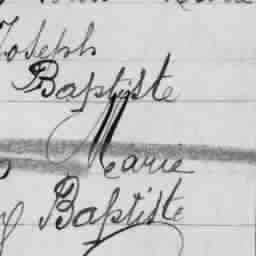 Joseph
Baptiste
Marie
Baptiste